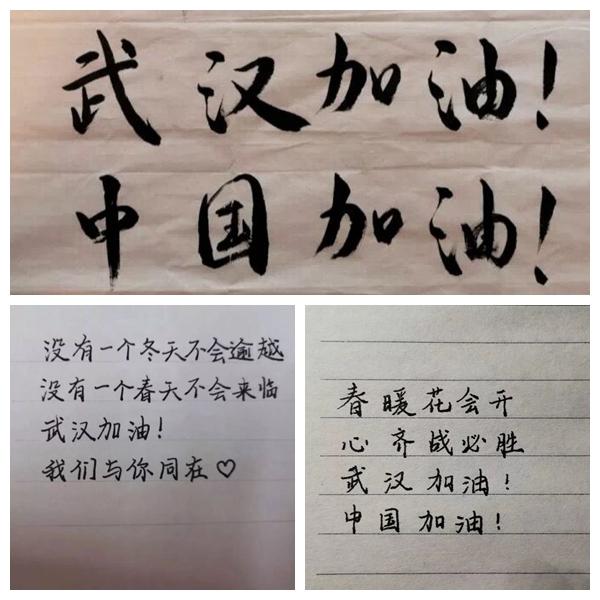 武汉加油!
中国加油!
没有一个冬天不会逾越
没有一个春天不会来临
武汉加油!
我们与你同在♡
春暖花会开
心齐战必胜
武汉加油!
中国加油!